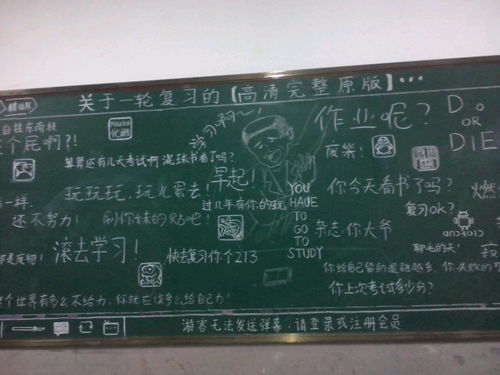 关于一轮复习的【高清完整原版】…
自挂东南枝
个屁啊?!
作业呢?
Do
OR
DIE
废柴:
算算还有几天考试啊 混球书看了吗?
早起!
玩玩玩,玩儿蛋去
过几年有你的玩
你今天看书了吗?
燃
一样.
还不努力!
复习OK?
YOU
HAVE
TO
GO
TO
STUDY
杂志.你大爷
ANDROID
滚去学习!
快去复习你个213
聊毛的天!
你上次考试多少分?
这个世界有多么不给力,你就应该多么给自己力!
游客无法发送弹幕,请登录或注册会员